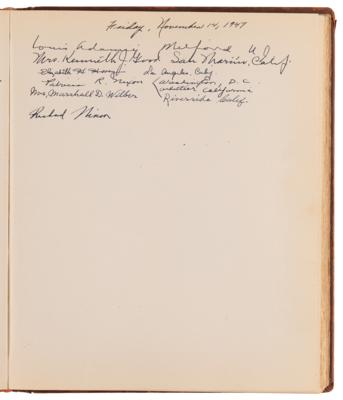 Friday, November 14, 1947
Louis Adamic Milford N.J.
Mrs. Kenneth J. Good San Marino, Calif.
Elizabeth H. Los Angeles, Calif
Patricia R. Nixon Washington, D.C.
Whittier California
Mrs. Marshall D. Wilber Riverside Calif.
Richard Nixon